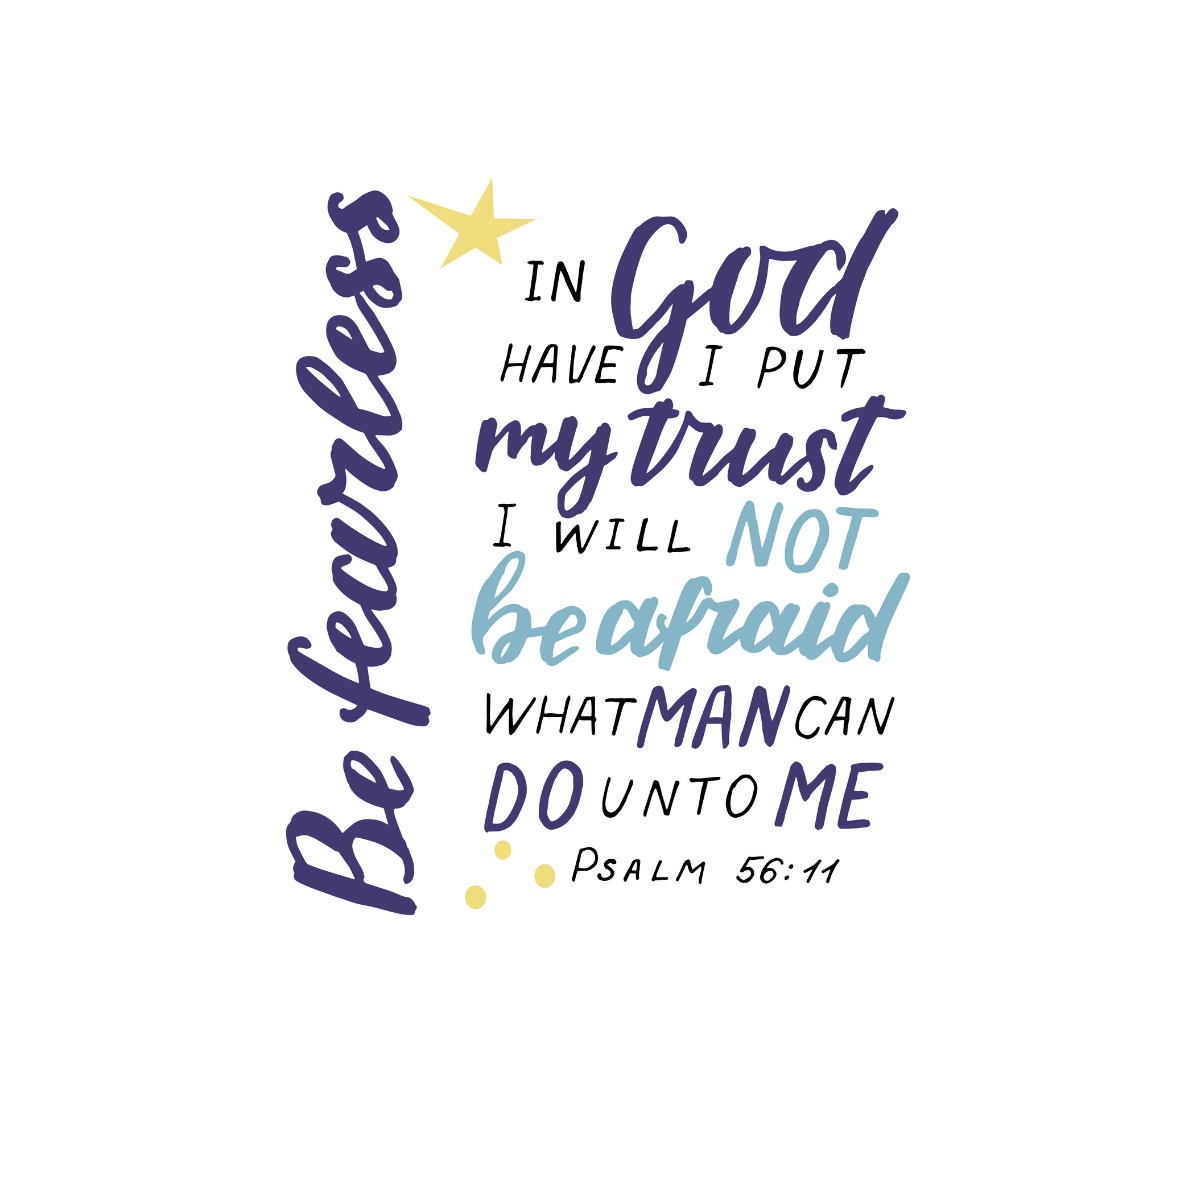 Be fearless
IN God
HAVE I PUT
my trust
I WILL NOT
be afraid
WHAT MAN CAN
DO UNTO ME
PSALM 56:11